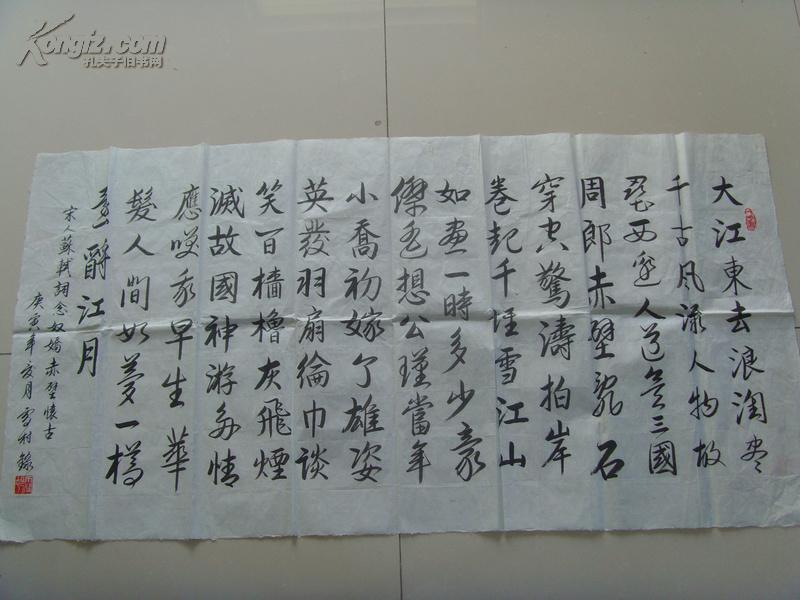 Kongfz.com
孔夫子旧书网
大江東去浪淘尽
千古風流人物故
壘西邊人道是三國
周郎赤壁亂石
穿空驚濤拍岸
卷起千堆雪江山
如畫一時多少豪
傑遙想公瑾當年
小喬初嫁了雄姿
英發羽扇綸巾談
笑間檣櫓灰飛煙
滅故國神游多情
應笑我早生華
髮人間如夢一樽
還酹江月
宋人蘇軾詞念奴嬌赤壁懷古
庚寅年亥月雪村錄